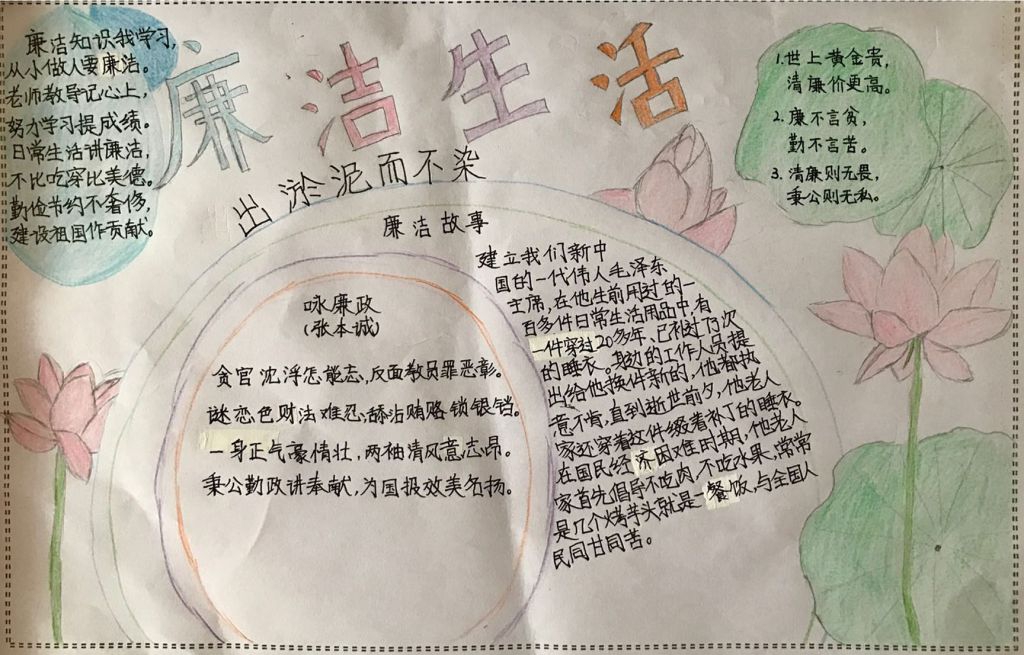 廉洁生活
出淤泥而不染
廉洁知识我学习,
从小做人要廉洁。
老师教导记心上,
努力学习提成绩。
日常生活讲廉洁,
不比吃穿比美德。
勤俭节约不奢侈,
建设祖国作贡献。
1.世上黄金贵,
清廉价更高。
2.廉不言贫,
勤不言苦。
3.清廉则无畏,
秉公则无私。
咏廉政
(张本诚)
贪官沈浮怎能忘,反面教员罪恶彰。
谜恋色财法难忍,舔沾贿赂锁银铛。
一身正气豪情壮,两袖清风意志昂。
秉公勤政讲奉献,为国报效美名扬。
廉洁故事
建立我们新中
国的一代伟人毛泽东
主席,在他生前用过的一
百多件日常生活用品中,有
一件穿过20多年、已补过73次
的睡衣。身边的工作人员提
出给他换件新的,他都执
意不肯,直到逝世前夕,他老人
家还穿着这件缀着补丁的睡衣。
在国民经济困难时期,他老人
家首先倡导不吃肉,不吃水果,常常
是几个烤芋头就是一餐饭,与全国人
民同甘同苦。